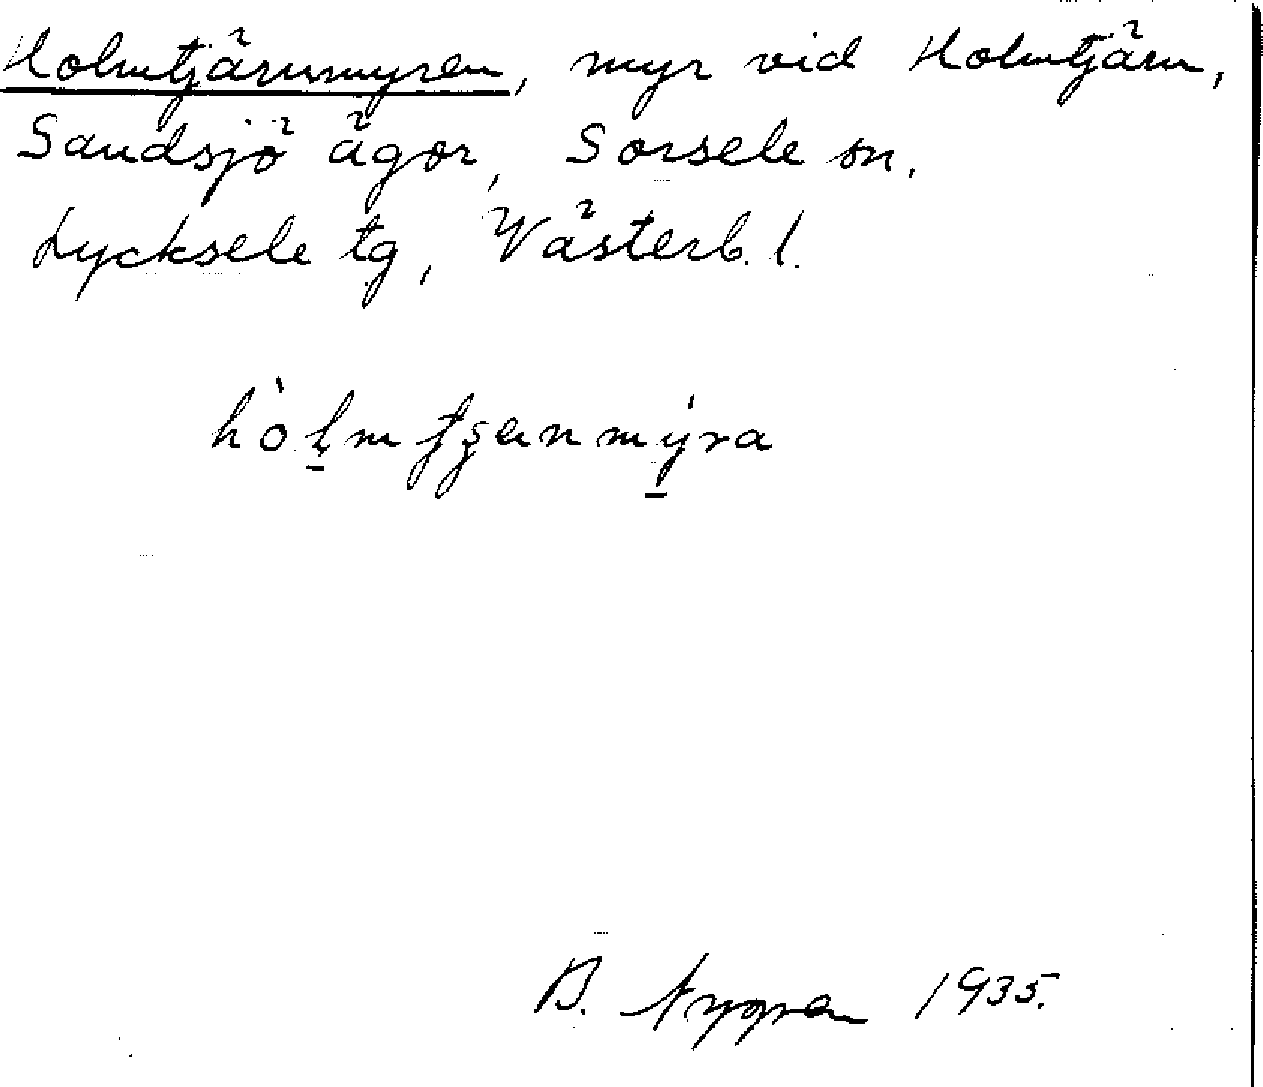 Holmtjärnmyren, myr vid Holmtjärn,
Sandsjö ägor, Sorsele sn.
Lycksele tg, Västerb. l.
B. Nygren 1935.